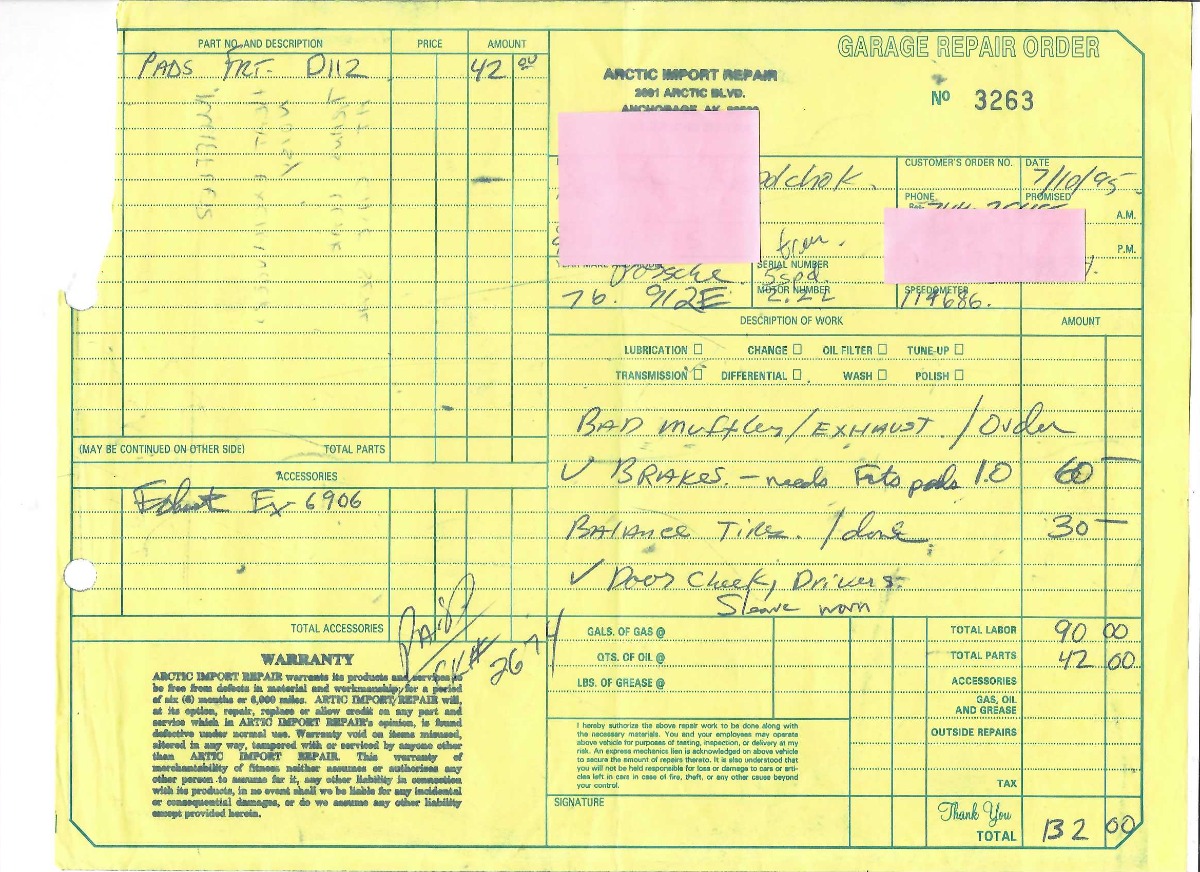 PART NO. AND DESCRIPTION PRICE AMOUNT
PADS FRT. D112 42 00
(MAY BE CONTINUED ON OTHER SIDE) TOTAL PARTS
ACCESSORIES
Exhust Ex 6906
TOTAL ACCESSORIES
PAID
CK# 2674
WARRANTY
ARCTIC IMPORT REPAIR warrants its products and services to
be free from defects in material and workmanship, for a period
of six (6) months or 6,000 miles. ARTIC IMPORT REPAIR will,
at its option, repair, replace or allow credit on any part and
service which in ARTIC IMPORT REPAIR's opinion, is found
defective under normal use. Warranty void on items misused,
altered in any way, tampered with or serviced by anyone other
than ARTIC IMPORT REPAIR. This warranty of
merchantability of fitness neither assumes or authorizes any
other person to assume for it, any other liability in connection
with its products, in no event shall we be liable for any incidental
or consequential damages, or do we assume any other liability
except provided herein.
GARAGE REPAIR ORDER
ARCTIC IMPORT REPAIR
ARCTIC BLVD.
ANCHORAGE, AK
No 3263
CUSTOMER'S ORDER NO. DATE
7/10/95
PHONE PROMISED
A.M.
P.M.
tran.
SERIAL NUMBER
Porsche 5spd.
MOTOR NUMBER SPEEDOMETER
76. 912E 114686.
DESCRIPTION OF WORK AMOUNT
LUBRICATION CHANGE OIL FILTER TUNE-UP
TRANSMISSION DIFFERENTIAL WASH POLISH
BAD muffler/EXHAUST /Order
✓ BRAKES. - needs Frts pads 1.0 60 —
BALANCE TIRE. /done. 30 —
✓ Door Check, Drivers.
Sleave worn
GALS. OF GAS @ TOTAL LABOR 90 00
QTS. OF OIL @ TOTAL PARTS 42 00
LBS. OF GREASE @ ACCESSORIES
GAS, OIL
AND GREASE
OUTSIDE REPAIRS
I hereby authorize the above repair work to be done along with
the necessary materials. You and your employees may operate
above vehicle for purposes of testing, inspection, or delivery at my
risk. An express mechanics lien is acknowledged on above vehicle
to secure the amount of repairs thereto. It is also understood that
you will not be held responsible for loss or damage to cars or arti-
cles left in cars in case of fire, theft, or any other cause beyond
your control.
TAX
SIGNATURE
Thank You
TOTAL 132 00